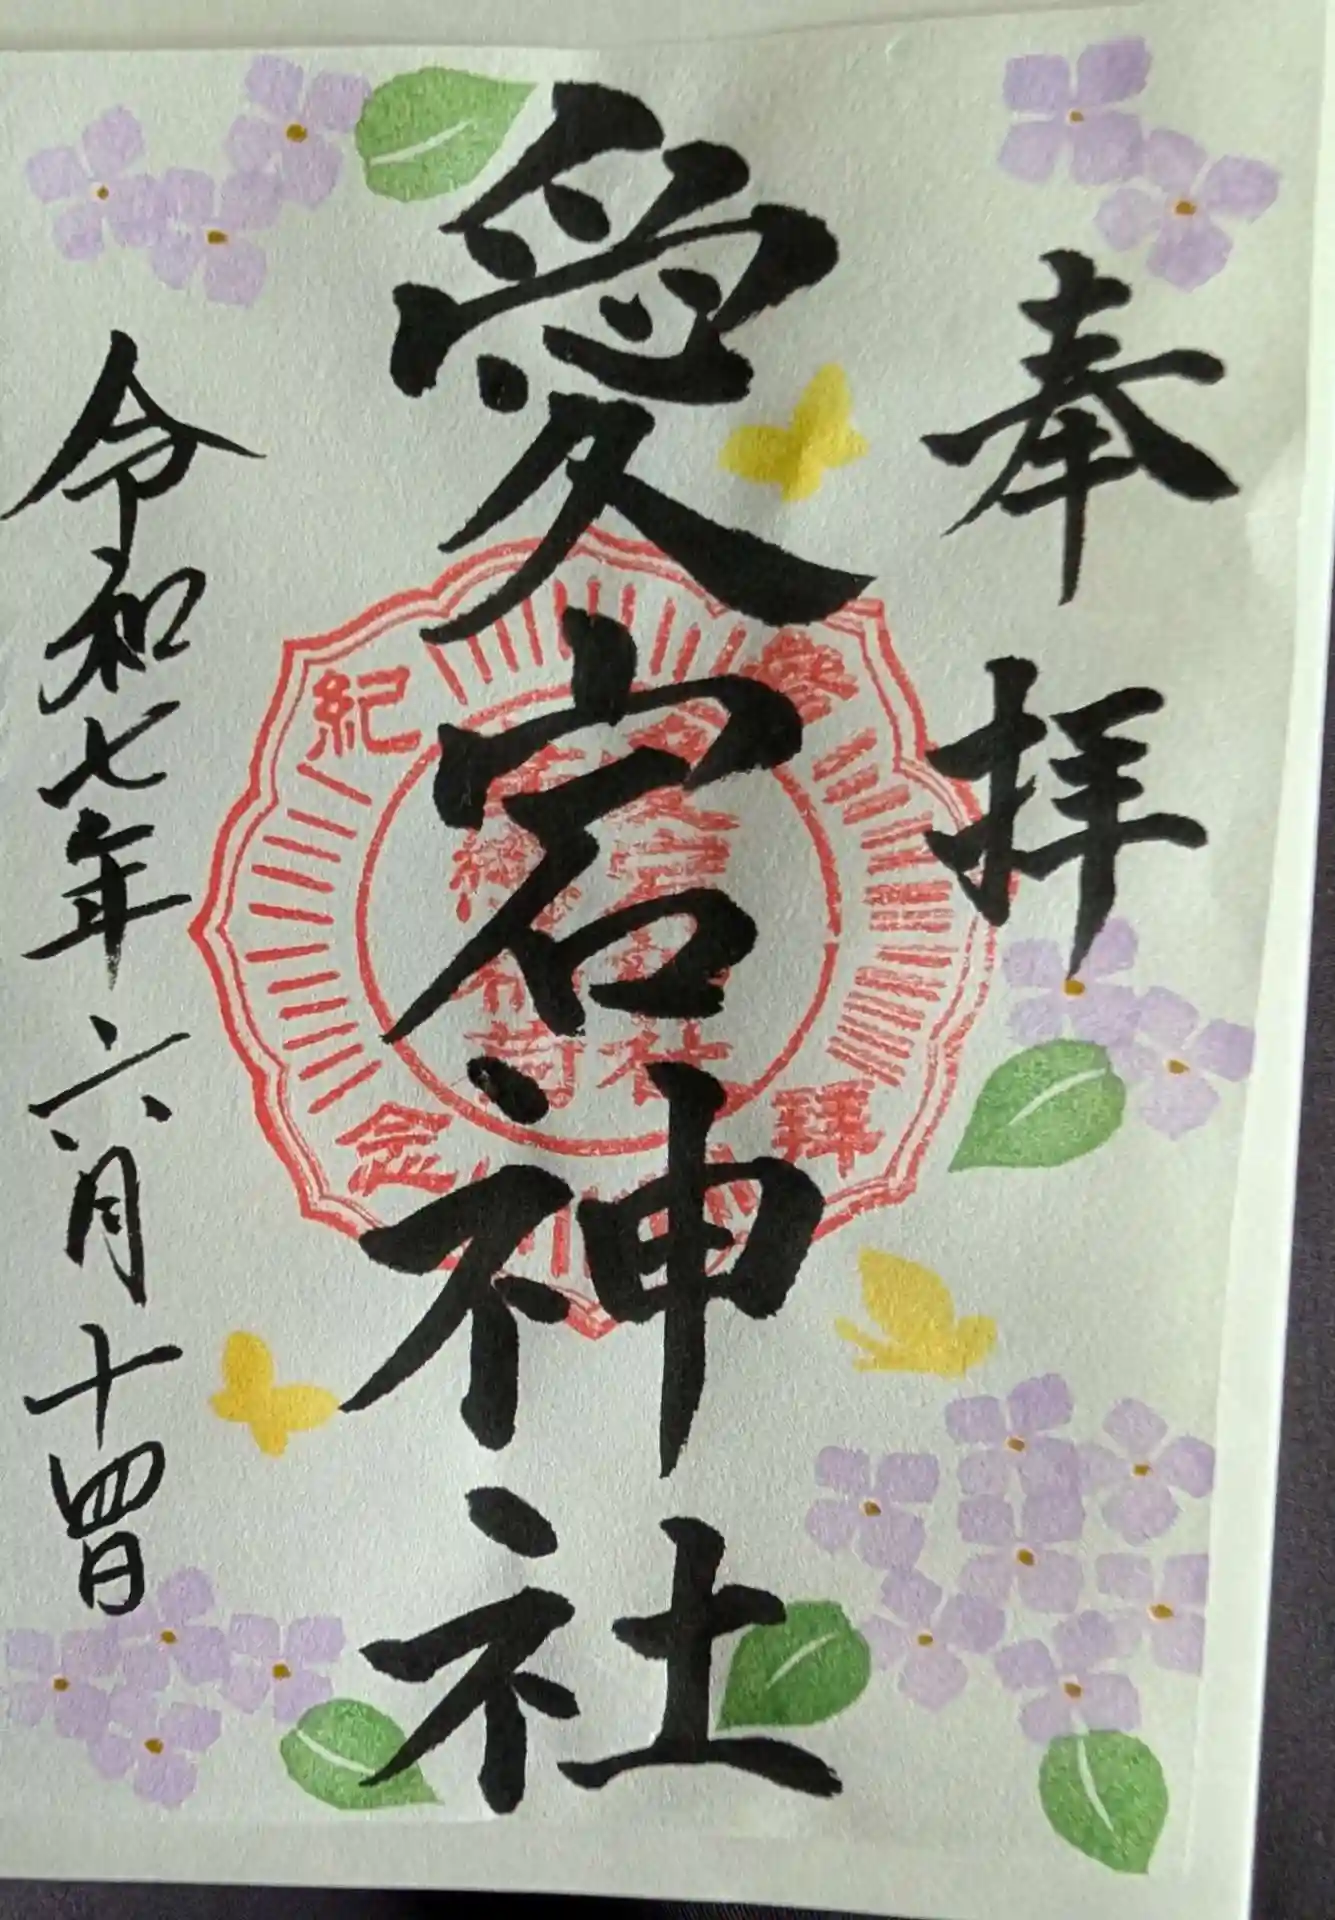 奉拝
愛宕神社
参拝紀念
令和七年六月十四日